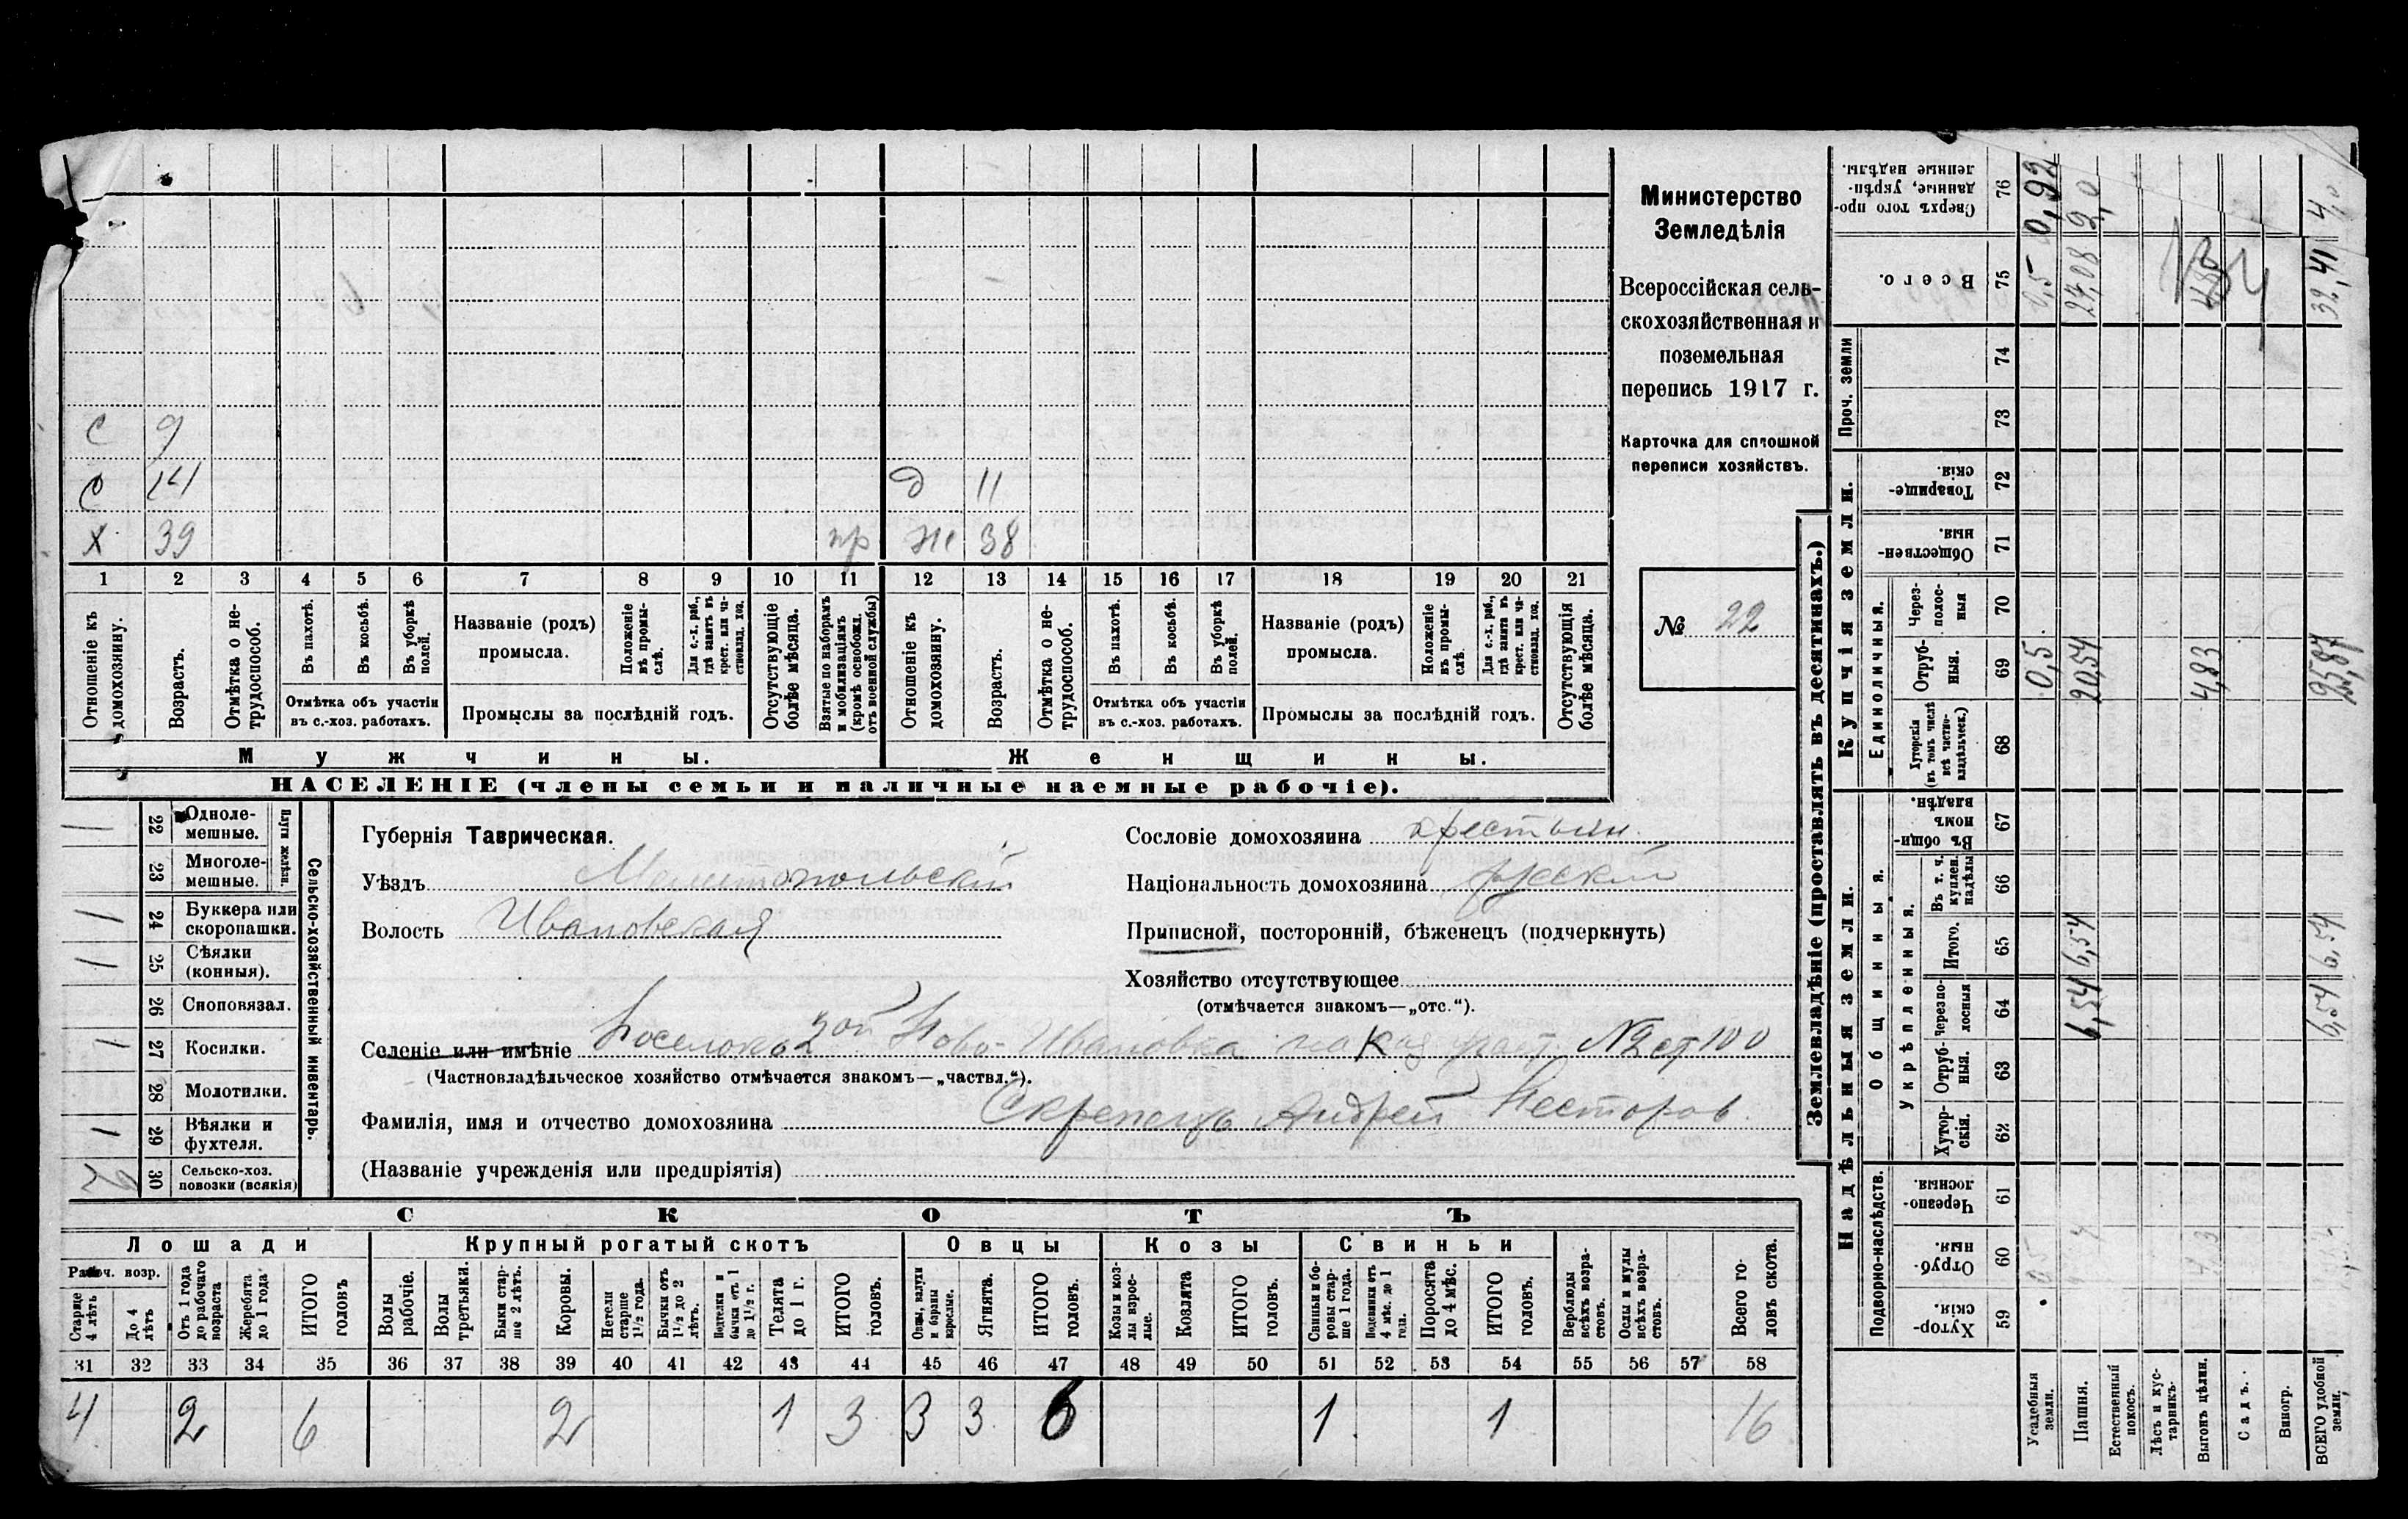 С 9
С 14 д 11
Х 39 пр ж 38
1 2 3 4 5 6 7 8 9 10 11 12 13 14 15 16 17 18 19 20 21
Отношеніе къ домохозяину.
Возрастъ.
Отмѣтка о не-
трудоспособ.
Въ пахотѣ.
Въ косьбѣ.
Въ уборкѣ полей.
Отмѣтка объ участіи
въ с.-хоз. работахъ.
Названіе (родъ)
промысла.
Положеніе въ промы-
слѣ.
Для с.-х. раб., гдѣ занятъ въ крест. или ча-
стновлад. хоз.
Промыслы за послѣдній годъ.
Отсутствующіе болѣе мѣсяца.
Взятые по наборамъ и мобилизаціямъ (кромѣ освобожд. отъ военной службы)
Отношеніе къ домохозяину.
Возрастъ.
Отмѣтка о не-
трудоспособ.
Въ пахотѣ.
Въ косьбѣ.
Въ уборкѣ полей.
Отмѣтка объ участіи
въ с.-хоз. работахъ.
Названіе (родъ)
промысла.
Положеніе въ промы-
слѣ.
Для с.-х. раб., гдѣ занята въ крест. или ча-
стновлад. хоз.
Промыслы за послѣдній годъ.
Отсутствующія болѣе мѣсяца.
Мужчины. Женщины.
НАСЕЛЕНІЕ (члены семьи и наличные наемные рабочіе).
Министерство
Земледѣлія
Всероссійская сель-
скохозяйственная и
поземельная
перепись 1917 г.
Карточка для сплошной
переписи хозяйствъ.
№ 22
1 22 Одноле-
мешные.
23 Многоле-
мешные.
Плуги желѣзн.
1 24 Буккера или
скоропашки.
1 25 Сѣялки
(конныя).
26 Сноповязал.
1 27 Косилки.
28 Молотилки.
1 29 Вѣялки и
фухтеля.
2 30 Сельско-хоз.
повозки (всякія)
Сельско-хозяйственный инвентарь.
Губернія Таврическая.
Уѣздъ Мелитопольскій
Волость Ивановская
Сословіе домохозяина крестьян.
Національность домохозяина русскій
Приписной, посторонній, бѣженецъ (подчеркнуть)
Хозяйство отсутствующее
(отмѣчается знакомъ—„отс.“).
Селеніе или имѣніе Поселокъ 2ой Ново-Ивановка уч №2 ст 100
(Частновладѣльческое хозяйство отмѣчается знакомъ—„частвл.“).
Фамилія, имя и отчество домохозяина Скрепецъ Андрей Несторов.
(Названіе учрежденія или предпріятія)
СКОТЪ
Лошади Крупный рогатый скотъ Овцы Козы Свиньи
Рабоч. возр.
Старше 4 лѣтъ
До 4 лѣтъ
Отъ 1 года до рабочаго возраста
Жеребята до 1 года
ИТОГО головъ
Волы рабочіе.
Волы третьяки.
Быки стар-
ше 2 лѣтъ.
Коровы.
Нетели старше 1½ года.
Бычки отъ 1½ до 2 лѣтъ.
Подтелки и бычки отъ 1 до 1½ г.
Телята до 1 г.
ИТОГО головъ.
Овцы, валухи и бараны взрослые.
Ягнята.
ИТОГО головъ.
Козы и коз-
лы взрос-
лые.
Козлята
ИТОГО головъ.
Свиньи и бо-
ровы стар-
ше 1 года.
Подсвинки отъ 4 мѣс. до 1 года.
Поросята до 4 мѣс.
ИТОГО головъ.
Верблюды всѣхъ возра-
стовъ.
Ослы и мулы всѣхъ возра-
стовъ.
Всего го-
ловъ скота.
31 32 33 34 35 36 37 38 39 40 41 42 43 44 45 46 47 48 49 50 51 52 53 54 55 56 57 58
4 2 6 2 1 3 3 3 6 1 1 16
Землевладѣніе (проставлять въ десятинахъ.)
Надѣльныя земли. Купчія земли. Проч. земли
Подворно-наслѣдств.
Общинныя.
Укрѣпленныя.
Единоличныя.
Хутор-
скія. 59
Отруб-
ныя. 60
Черезпо-
лосныя. 61
Хутор-
скія. 62
Отруб-
ныя. 63
Черезпо-
лосныя 64
Итого. 65
Въ т. ч. куплен. надѣлы 66
Въ общин-
номъ владѣн. 67
Хуторскія (въ томъ числѣ всѣ частно-
владѣльческ.) 68
Отруб-
ныя. 69
Через-
полос-
ныя 70
Обществен-
ныя. 71
Товарище-
скія. 72
73 74
Всего. 75
Сверхъ того про-
данные, укрѣп-
ленные надѣлы. 76
Усадебныя земли. 0,5 0,5 0,92
Пашня. 6,54 6,54 20,54 27,08 2,0
Естественный покосъ.
Лѣсъ и кус-
тарникъ.
Выгонъ цѣлин. 4,83
Садъ.
Виногр.
ВСЕГО удобной земли. 6,54 6,54 25,87 32,41